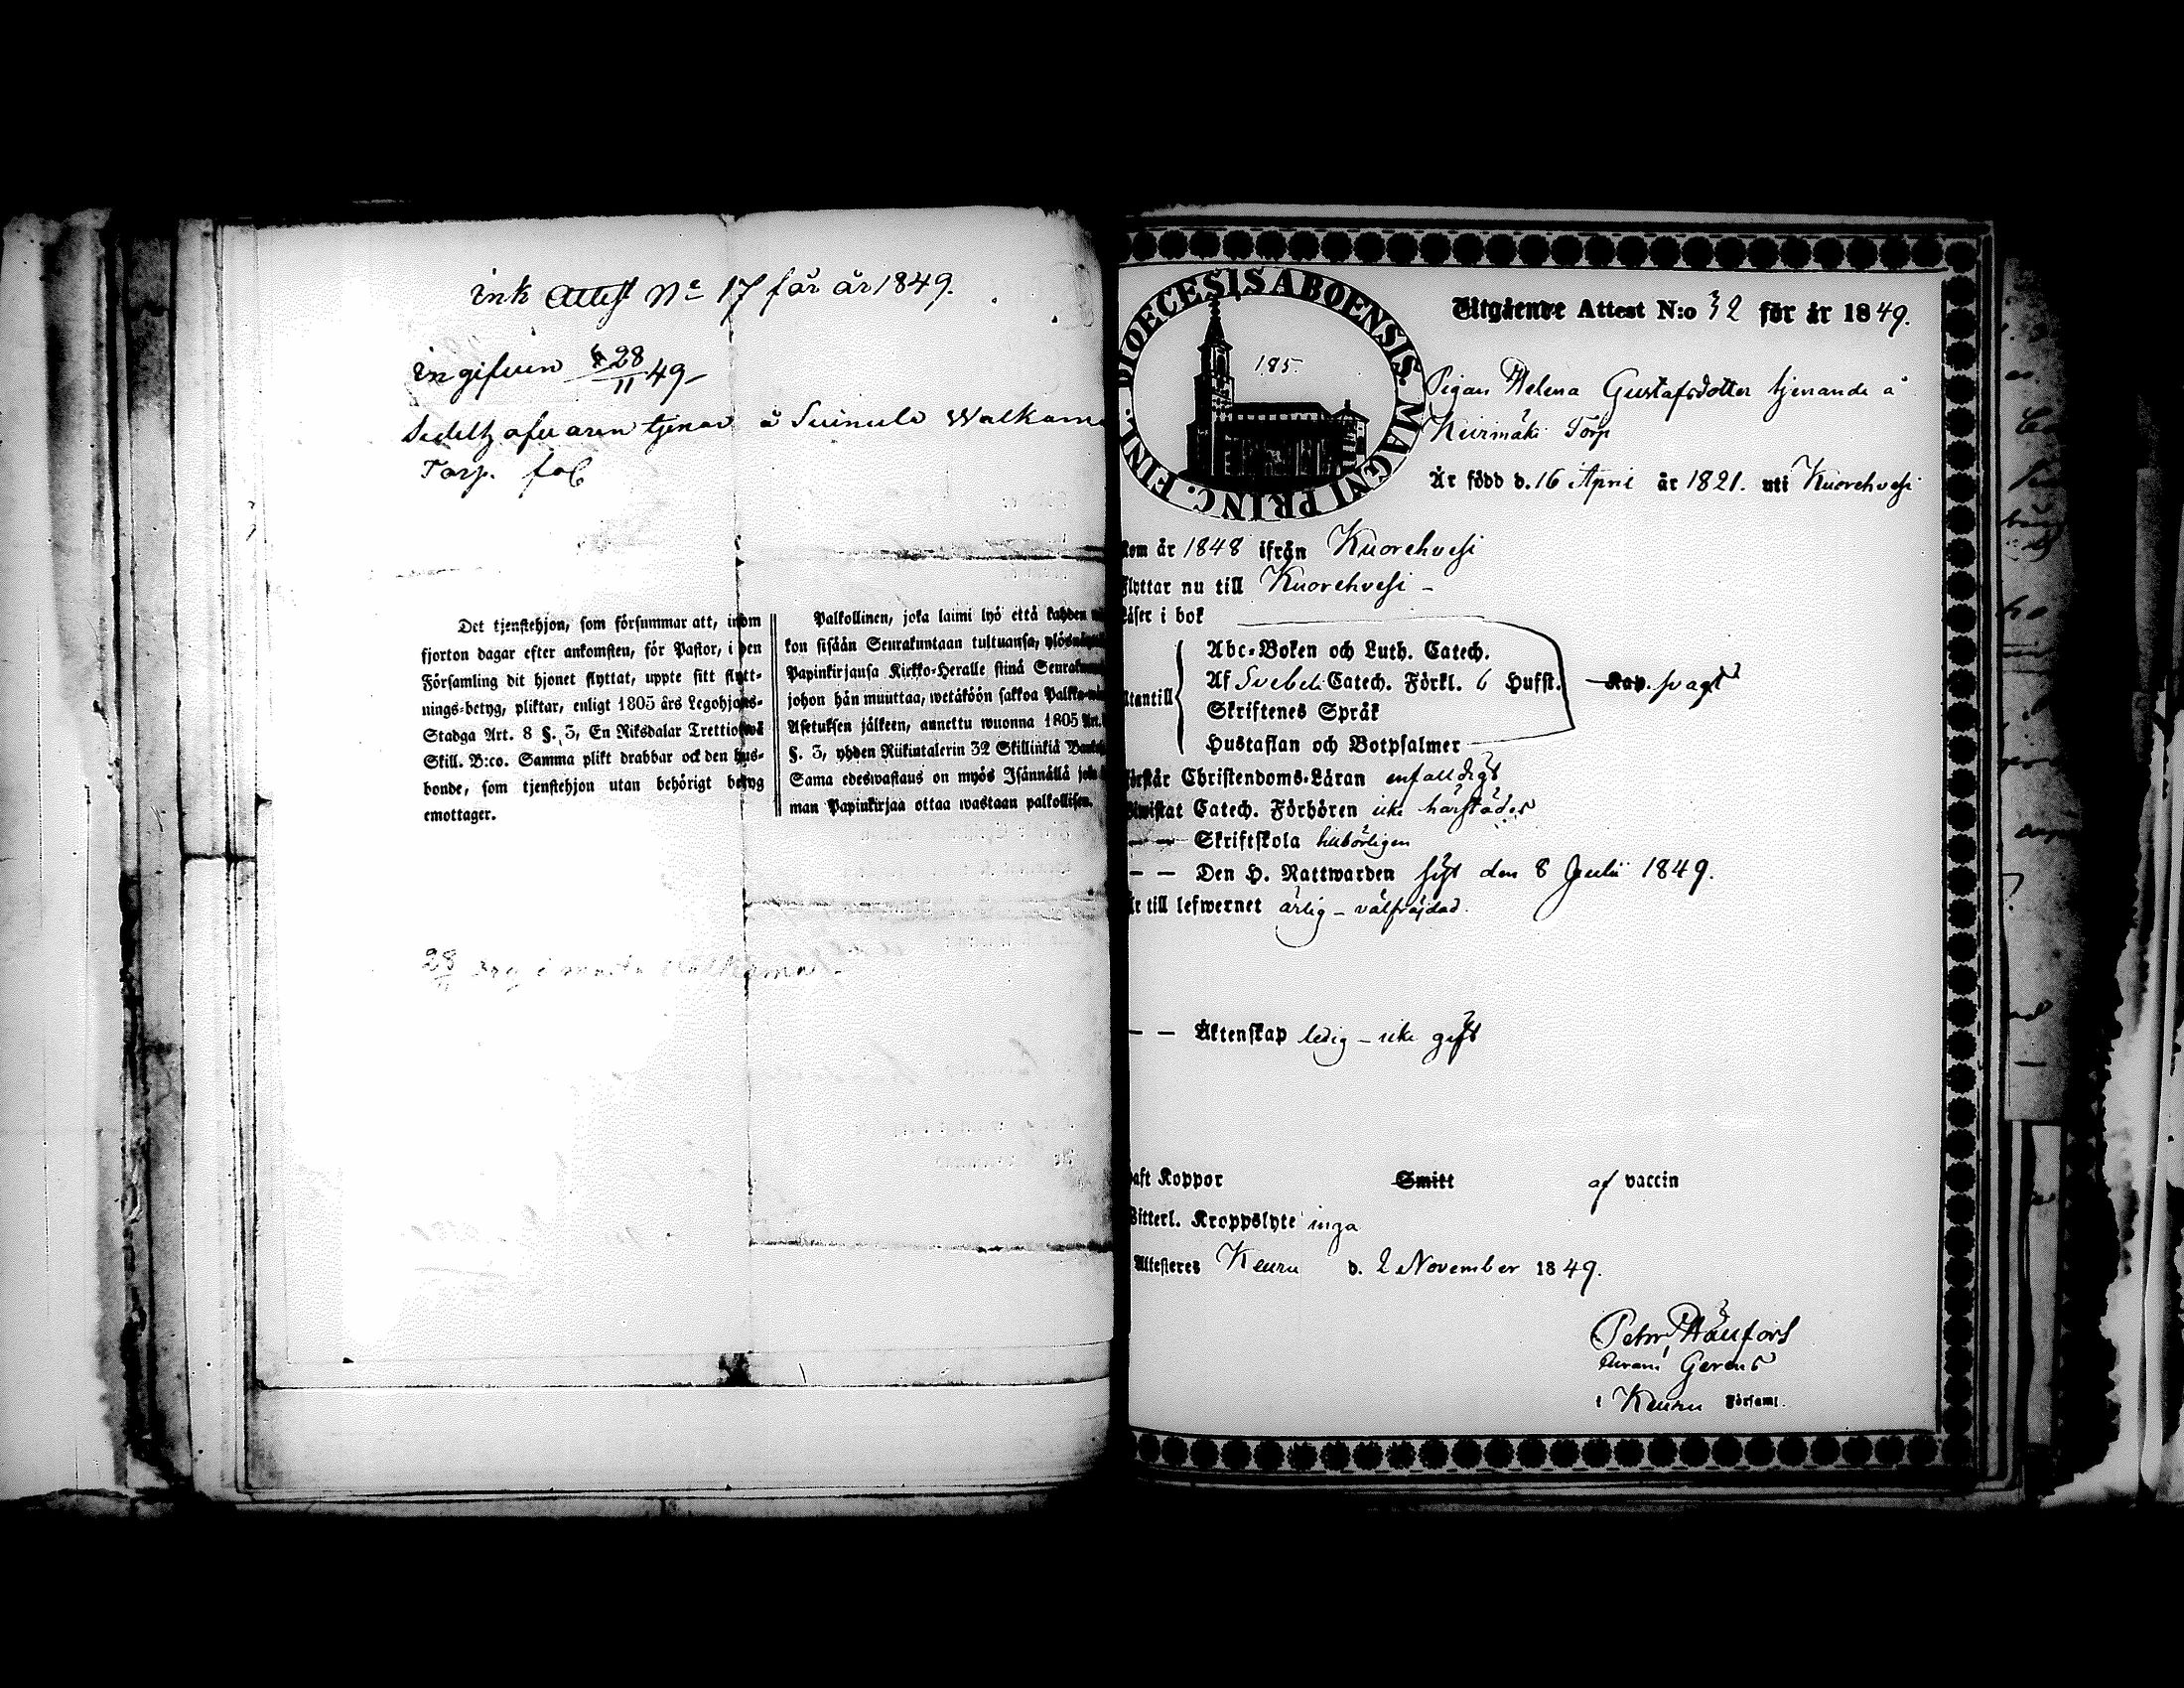 ink Attest N:o 17 för år 1849.
ingifven 28/11 49
Sedelh afvaren tjenar å Suinula Walkama
Torp. fol
Det tjenstehjon, som försummar att, inom
fjorton dagar efter ankomsten, för Pastor, i den
Församling dit hjonet flyttat, uppte sitt flytt-
nings-betyg, pliktar, enligt 1805 års Legohjons-
Stadga Art. 8 §. 3, En Riksdalar Trettiotwå
Skill. B:co. Samma plikt drabbar ock den hus-
bonde, som tjenstehjon utan behörigt betyg
emottager.
Palkollinen, joka laimi lyö että kahden
kon sisään Seurakuntaan tultuansa,
Papinkirjansa Kirkko-Heralle siinä
johon hän muuttaa, wetäköön sakkoa
Asetuksen jälkeen, annettu wuonna 1805 Art.
§. 3, yhden Riikintalerin 32 Skillinkiä
Sama edeswastaus on myös Isännällä
man Papinkirjaa ottaa wastaan palkollisen.
28
DIOECESIS ABOENSIS. MAGNI PRINC. FINL.
185
Utgående Attest N:o 32 för år 1849.
Pigan Helena Gustafsdotter tjenande å
Torp
Är född d. 16 April år 1821. uti Kuorehvesi
kom år 1848 ifrån Kuorehvesi
Flyttar nu till Kuorehvesi –
Läser i bok
Abc-Boken och Luth. Catech.
Af Svebeli Catech. Förkl. 6 Hufst. Kap. svagt
Utantill
Skriftenes Språk
Hustaflan och Botpsalmer
Förstår Christendoms-Läran enfaldigt
Bewistat Catech. Förhören icke härstädes
— — Skriftskola behörligen
— — Den H. Nattwarden sist den 8 Julii 1849.
Är till lefwernet ärlig – välfräjdad.
— — Äktenskap ledig – icke gift
Haft Koppor Smitt af vaccin
Witterl. Kroppslyte inga
Attesteres Keuru d. 2 November 1849.
Petter
Gerens
i Keuru Församl.